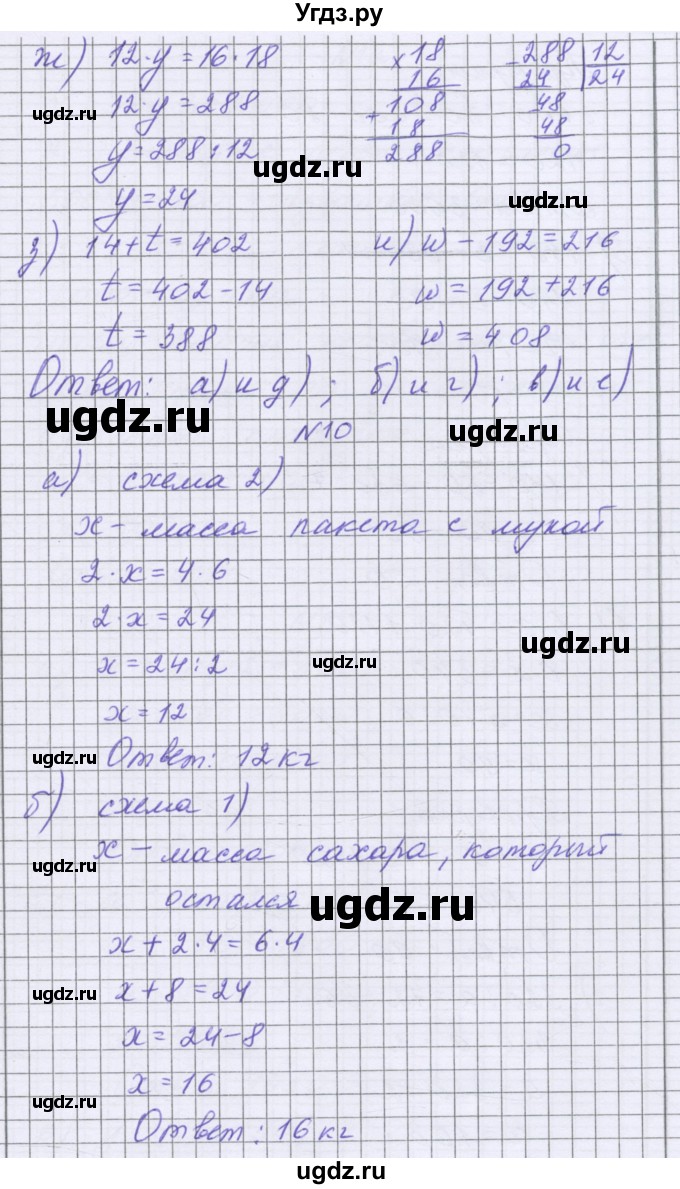 Угдз.ру
ж) 12·y=16·18
12·y=288
y=288:12
y=24
×18
16
+108
18
288
-288 12
24 24
48
48
0
з) 14+t=402
t=402-14
t=388
и) w-192=216
w=192+216
w=408
Ответ: а) и д); б) и г); в) и е)
№10
а) схема 2)
x - масса пакета с мукой
2·x=4·6
2·x=24
x=24:2
x=12
Ответ: 12 кг
б) схема 1)
x - масса сахара, который
остался
x+2·4=6·4
x+8=24
x=24-8
x=16
Ответ: 16 кг
ugdz.ru
ugdz.ru
ugdz.ru
ugdz.ru
ugdz.ru
ugdz.ru
ugdz.ru
ugdz.ru
ugdz.ru
ugdz.ru
ugdz.ru
ugdz.ru
ugdz.ru
ugdz.ru